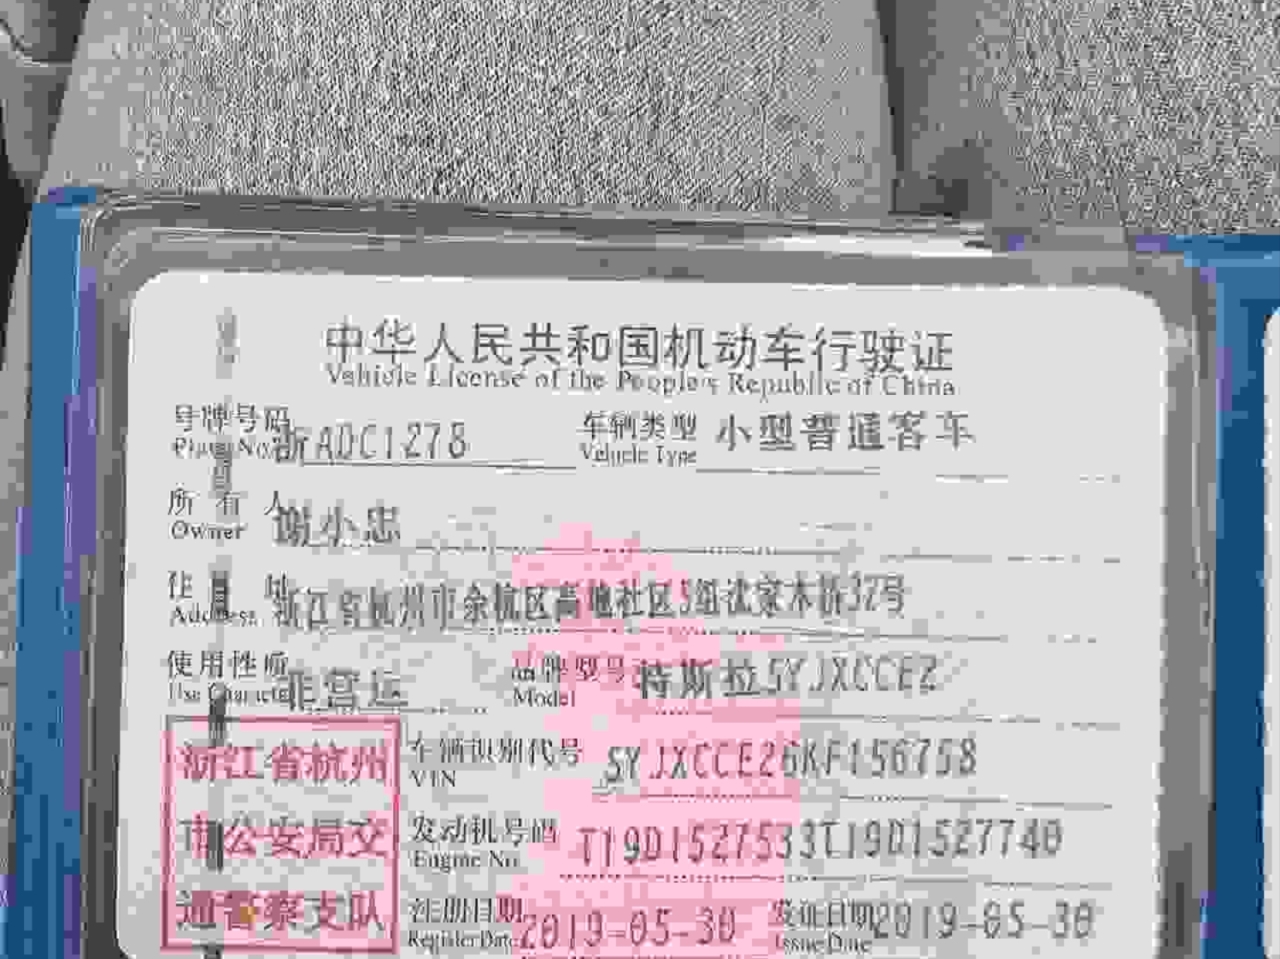 中华人民共和国机动车行驶证
Vehicle License of the People's Republic of China
号牌号码 浙ADC1278 车辆类型 小型普通客车
Plate No. Vehicle Type
所有人 谢小忠
Owner
住址 浙江省杭州市余杭区高地社区5组沈家木桥32号
Address
使用性质 非营运 品牌型号 特斯拉5YJXCCE2
Use Character Model
浙江省杭州 车辆识别代号 5YJXCCE26KF156758
VIN
市公安局交 发动机号码 T19D1527533T19D1527740
Engine No.
通警察支队 注册日期 2019-05-30 发证日期 2019-05-30
Register Date Issue Date